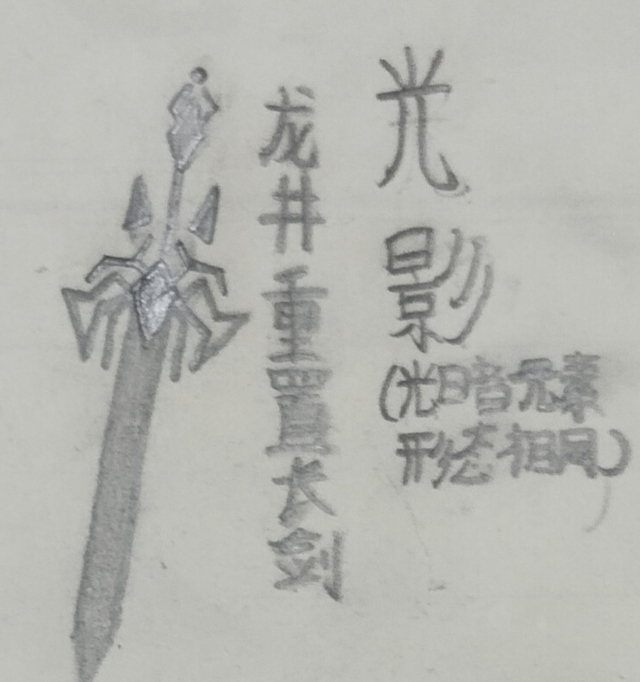 光影
(光暗元素
形态相同)
龙井重置长剑